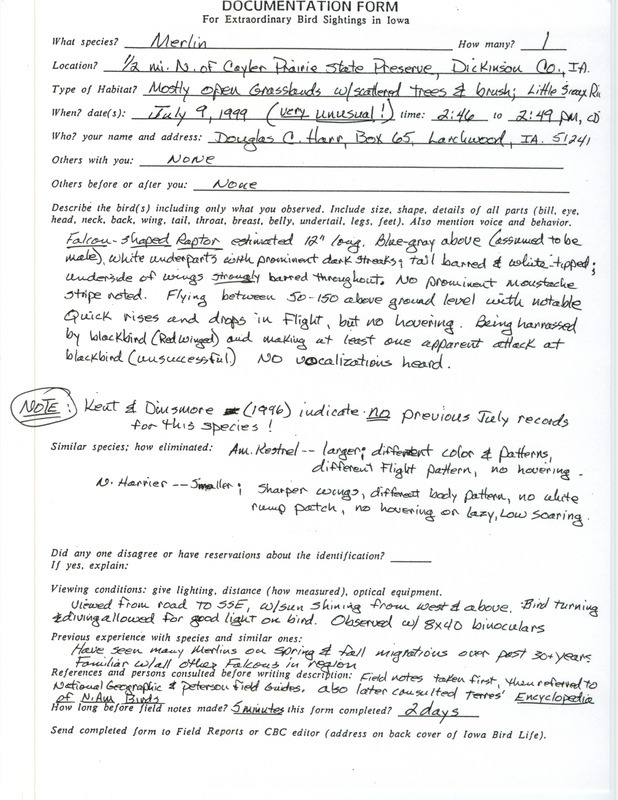 DOCUMENTATION FORM
For Extraordinary Bird Sightings in Iowa
What species? Merlin How many? 1
Location? 1/2 mi. N. of Cayler Prairie State Preserve, Dickinson Co., IA.
Type of Habitat? Mostly open Grasslands w/scattered trees & brush; Little Sioux Riv
When? date(s): July 9, 1999 (very unusual!) time: 2:46 to 2:49 PM, CD
Who? your name and address: Douglas C. Harr, Box 65, Larchwood, IA. 51241
Others with you? None
Others before or after you? None
Describe the bird(s) including only what you observed. Include size, shape, details of all parts (bill, eye,
head, neck, back, wing, tail, throat, breast, belly, undertail, legs, feet). Also mention voice and behavior.
Falcon-shaped Raptor estimated 12" long. Blue-gray above (assumed to be
male), white underparts with prominent dark streaks; tail barred & white-tipped;
underside of wings strongly barred throughout. No prominent moustache
stripe noted. Flying between 50-150 above ground level with notable
Quick rises and drops in flight, but no hovering. Being harrassed
by blackbird (Redwinged) and making at least one apparent attack at
blackbird (unsuccessful) No vocalizations heard.
NOTE: Kent & Dinsmore (1996) indicate no previous July records
for this species!
Similar species; how eliminated: Am. Kestrel -- larger; different color & patterns,
different flight pattern, no hovering.
N. Harrier -- Smaller; sharper wings, different body pattern, no white
rump patch, no hovering or lazy, low soaring.
Did any one disagree or have reservations about the identification?
If yes, explain:
Viewing conditions: give lighting, distance (how measured), optical equipment.
Viewed from road to SSE, w/sun shining from west & above. Bird turning
& diving allowed for good light on bird. Observed w/ 8x40 binoculars
Previous experience with species and similar ones:
Have seen many Merlins on spring & fall migrations over past 30+ years
Familiar w/all other Falcons in region
References and persons consulted before writing description: Field notes taken first, then referred to
National Geographic & Peterson field Guides. also later consulted Terres' Encyclopedia
of N. Am Birds
How long before field notes made? 5 minutes this form completed? 2 days
Send completed form to Field Reports or CBC editor (address on back cover of Iowa Bird Life).